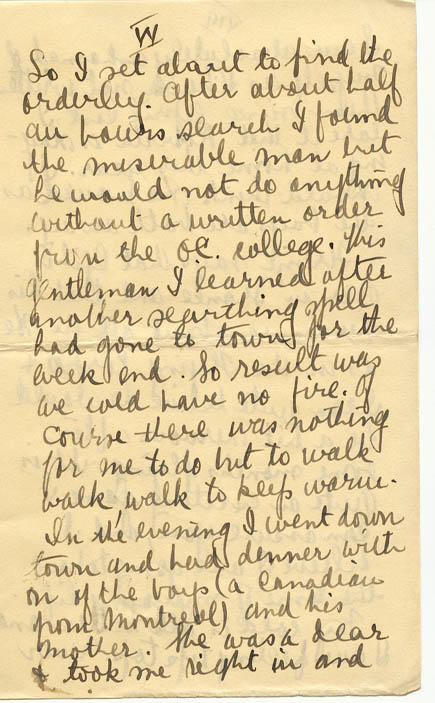 IV
So I set about to find the
orderley. After about half
an hours search I found
the miserable man but
he would not do anything
without a written order
from the OC. college. This
gentleman I learned after
another searthing spell
had gone to town for the
week end. So result was
we cold have no fire. Of
course there was nothing
for me to do but to walk
walk, walk to keep warm.
In the evening I went down
town and had dinner with
on of the boys (a Canadian
from Montreal) and his
mother. She was a dear
& took me right in and